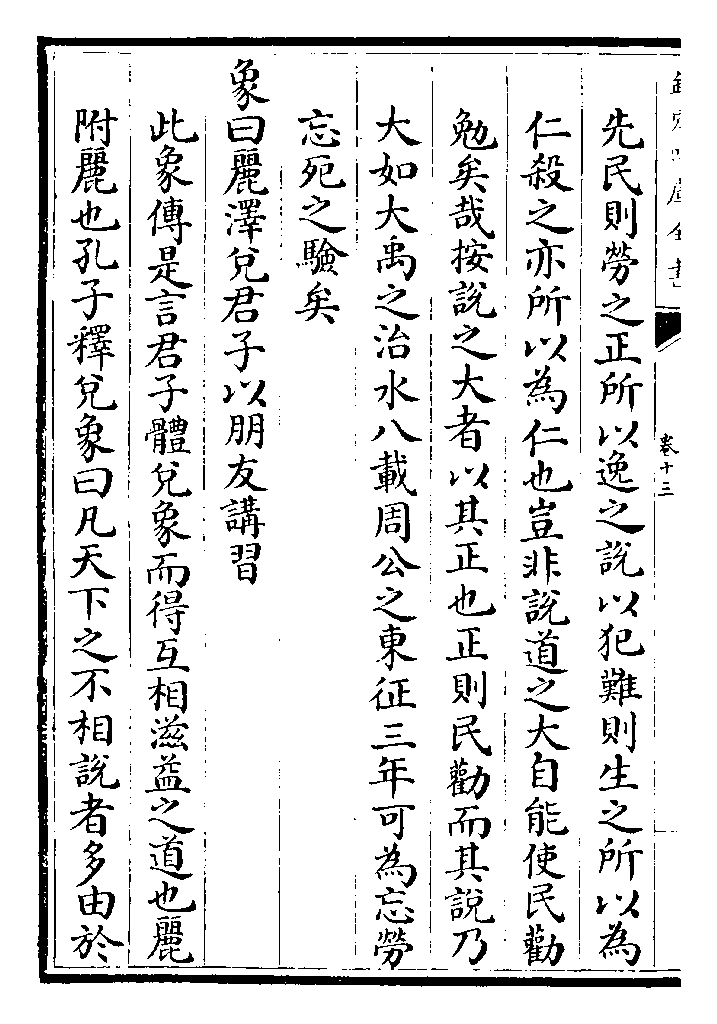 欽定四庫全書
卷十三
先民則勞之正所以逸之說以犯難則生之所以為
仁殺之亦所以為仁也豈非說道之大自能使民勸
勉矣哉按說之大者以其正也正則民勸而其說乃
大如大禹之治水八載周公之東征三年可為忘勞
忘死之驗矣
象曰麗澤兌君子以朋友講習
此象傳是言君子體兌象而得互相滋益之道也麗
附麗也孔子釋兌象曰凡天下之不相說者多由於